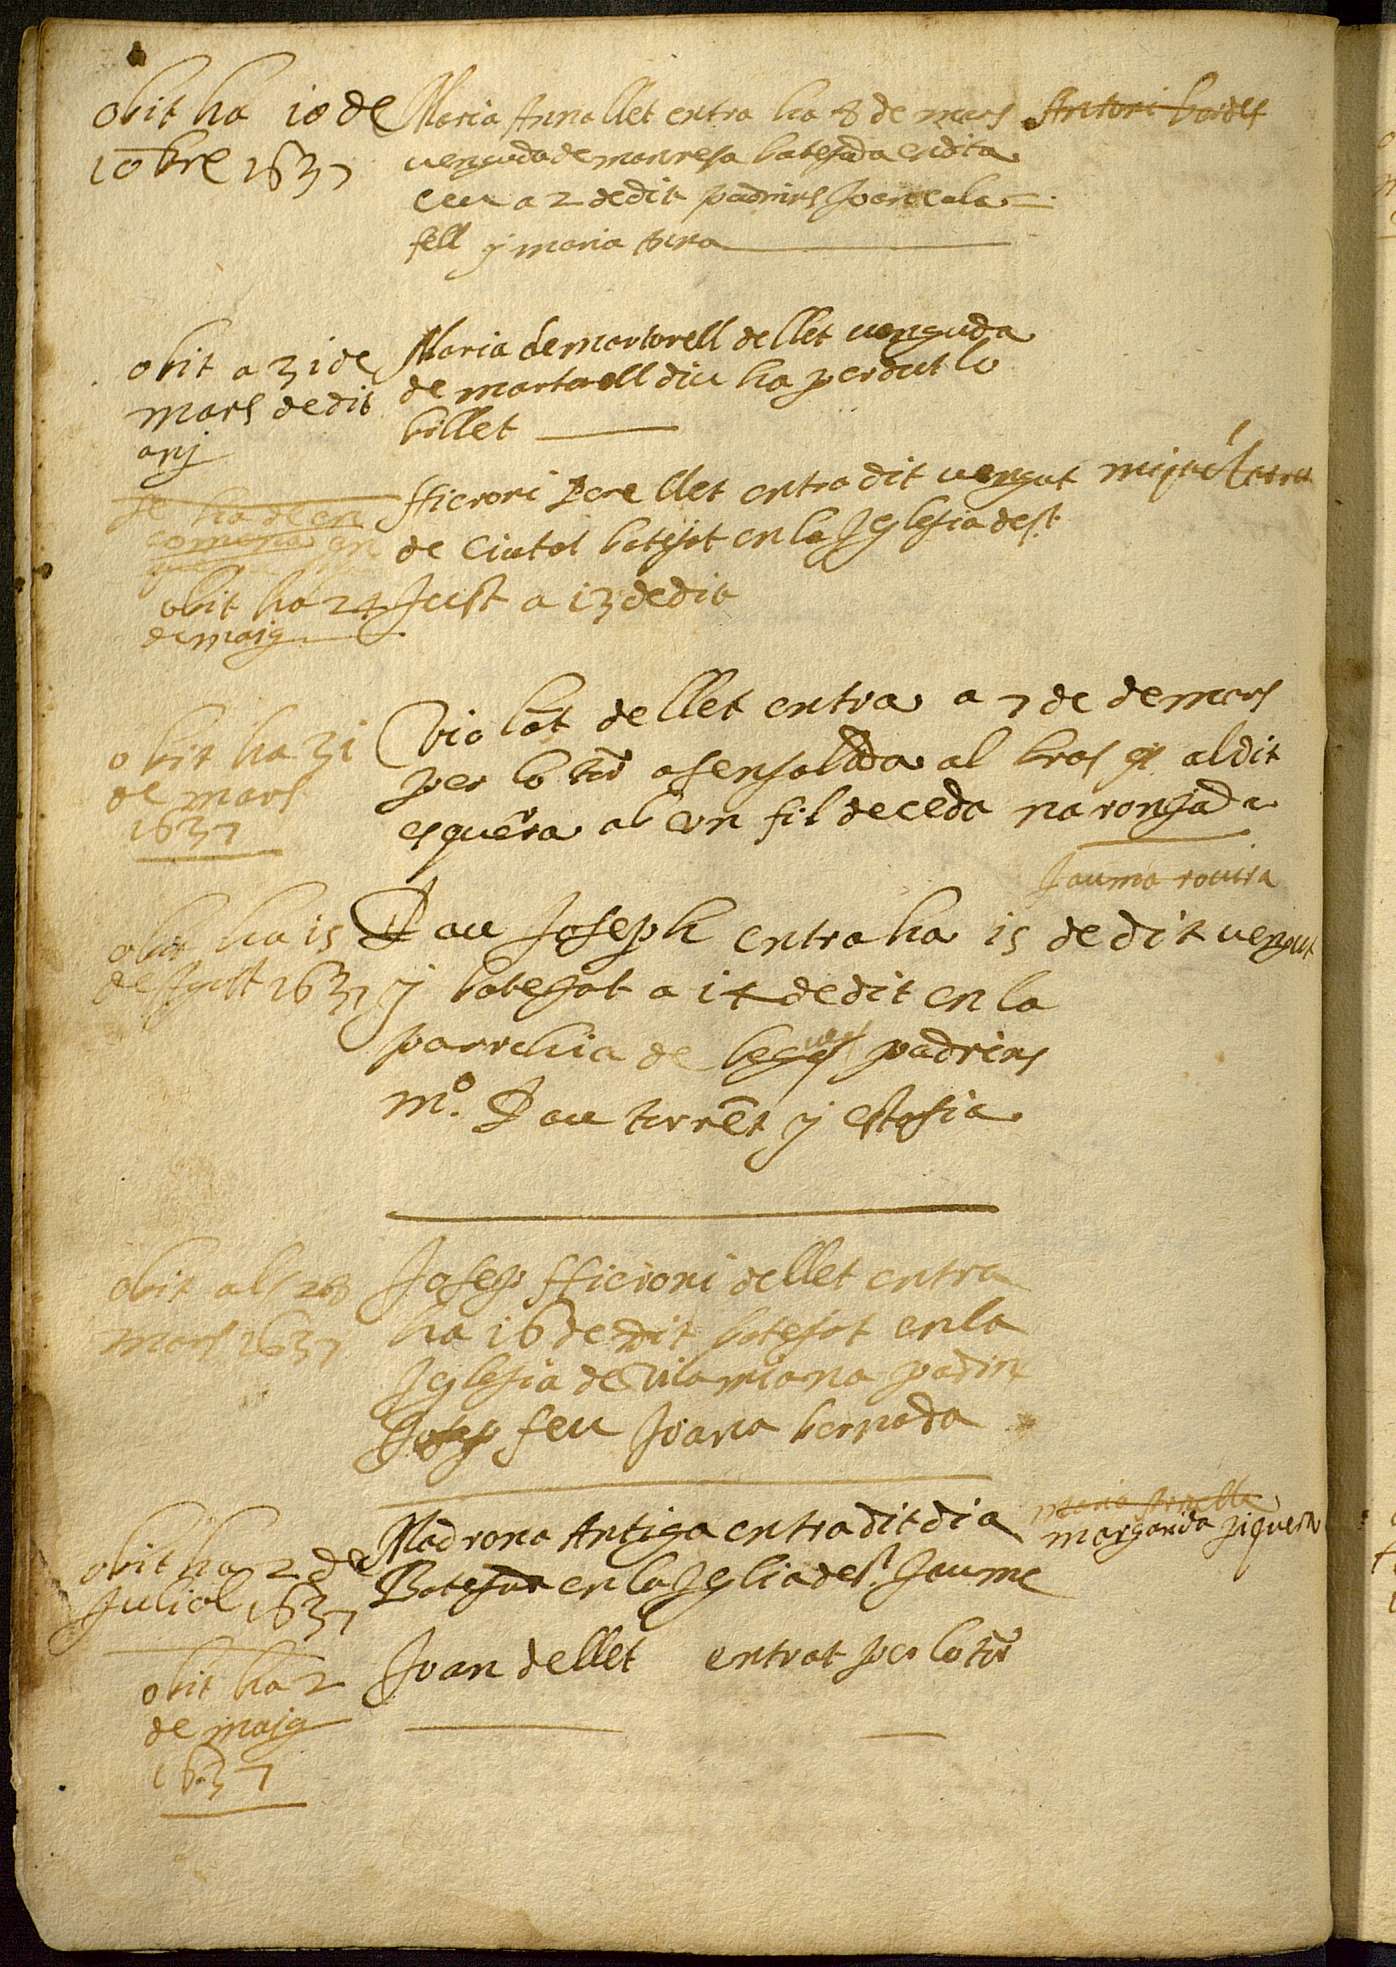 obit ha 10 de
10bre 1637
Maria Anna llet entra ha 8 de mars
venguda de manresa batejada en dita
Ciu a 2 de dit padrins Joan cala=
fell y maria
Antoni
obit a 31 de
mars de dit
anj
Maria de martorell de llet venguda
de martorell diu ha perdut lo
billet
ffieroni Pere llet entra dit vengut
de Ciutat batejat en la Iglesia de st.
Just a 13 de dit
miquel
se ha de en
comena
obit ha 24
de maig
obit ha 31
de mars
1637
Violât de llet entra a 7 de de mars
per lo tor asenyalada al bras al dit
esquêra ab vn fil de ceda naronjada
Jauma rouira
obit ha 15
1637
Pau Joseph entra ha 15 de dit vengut
y batejat a 14 de dit en la
parrchia de padrins
mo. Pau torrêt y estasia
obit als 28
mars 1637
Josep ffieroni de llet entra
ha 16 de dit batejat en la
Iglesia de Vilamiana padrins
Josep feu Joana bernada
obit ha 2 de
Juliol 1637
Madrona Antiga entra dit dia
Batejada en la Iglia de st. Jaume
maria
margarida piquera
obit ha 2
de maig
1637
Joan de llet entrat per lo tor